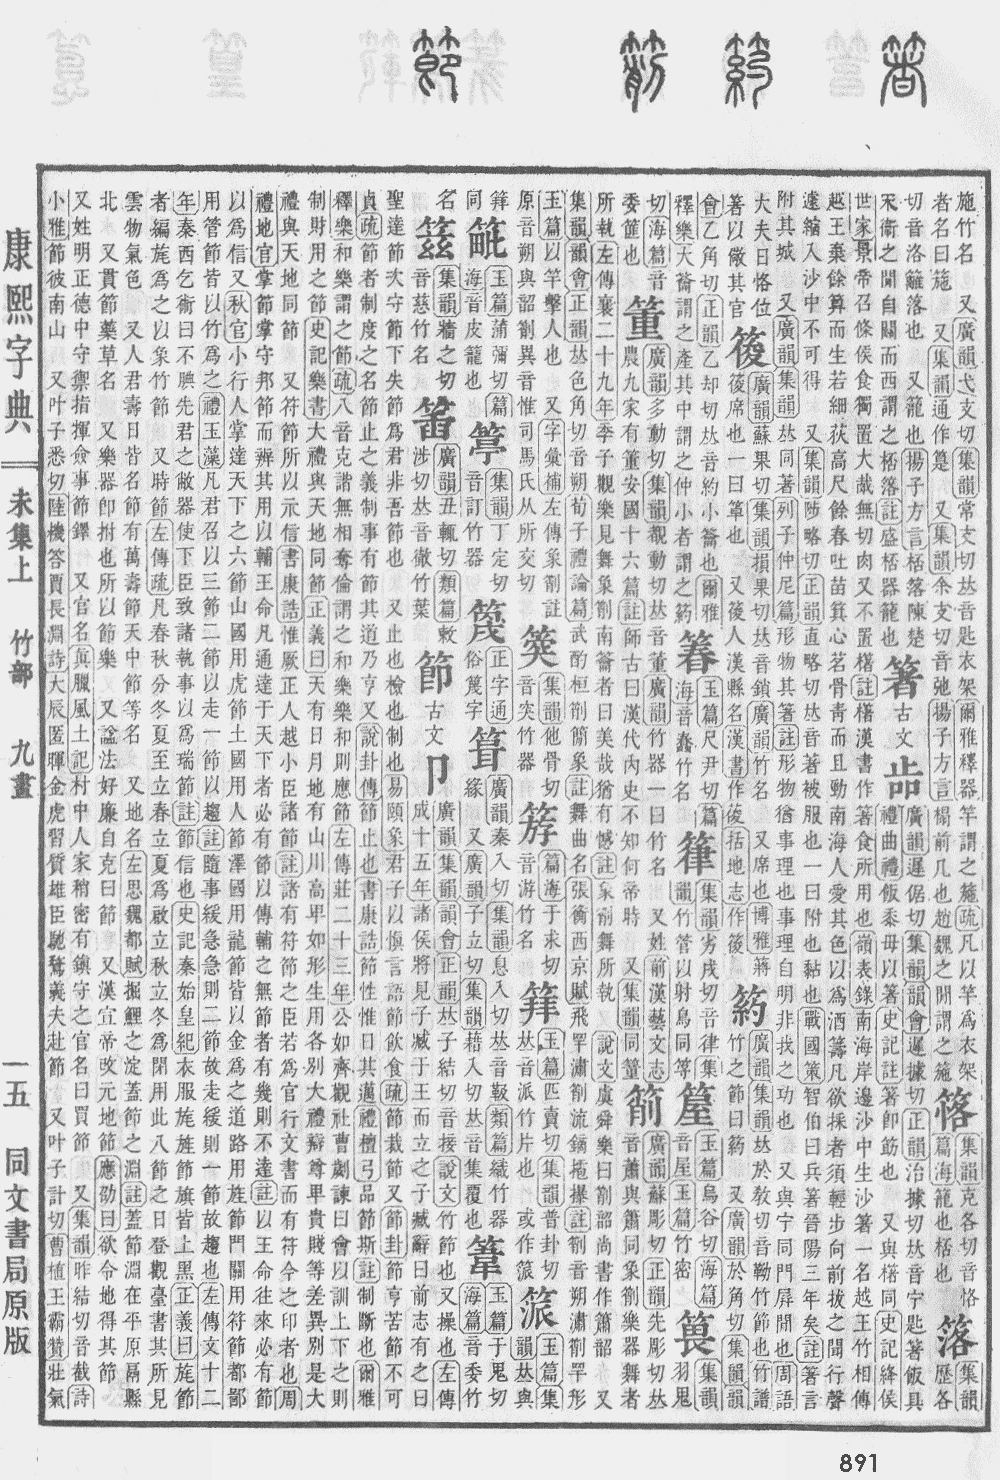 節 箾 箹 箸
施竹名　又廣韻弋支切集韻常支切𠀤音匙衣架爾雅釋器竿謂之箷疏凡以竿爲衣架
者名曰箷　又集韻通作椸　又集韻余支切音㢮揚子方言榻前几也趙魏之閒謂之箷
集韻克各切音恪
篇海籠也栝也
集韻歷各
切音洛籬落也　又籠也揚子方言桮落陳楚
宋衞之閒自關而西謂之桮落註盛桮器籠也
箸
古文
廣韻遲倨切集韻韻會遲據切正韻治據切𠀤音宁匙箸飯具
禮曲禮飯黍毋以箸史記註箸卽筯也　又與櫡同史記絳侯
世家景帝召條侯食獨置大胾無切肉又不置櫡註櫡漢書作箸食所用也嶺表錄南海岸邊沙中生沙箸一名越王竹相傳
越王棄餘算而生若細荻高尺餘春吐苗其心若骨靑而且勁南海人愛其色以爲酒籌凡欲採者須輕步向前拔之聞行聲
遽縮入沙中不可得　又集韻陟略切正韻直略切𠀤音著被服也一曰附也黏也戰國策智伯曰兵著晉陽三年矣註著言
附其城　又廣韻集韻𠀤同著列子仲尼篇形物其箸註形物猶事理也事理自明非我之功也　又與宁同門屛閒也周語
大夫日恪位
箸以儆其官
䈗
廣韻蘇果切集韻損果切𠀤音鎖廣韻竹名　又席也博雅蔣
䈗席也一曰篿也　又䈗人漢縣名漢書作䈗括地志作䈗
箹
廣韻集韻𠀤於敎切音靿竹節也竹譜
竹之節曰箹　又廣韻於角切集韻韻
會乙角切正韻乙却切𠀤音約小籥也爾雅
釋樂大籥謂之產其中謂之仲小者謂之箹
䈏
玉篇尺尹切篇
海音蠢竹名
䈑
集韻劣戌切音律集
韻竹管以射鳥同䇖
玉篇烏谷切海篇
音屋玉篇竹密
集韻
羽鬼
切海篇音
委篚也
董
廣韻多動切集韻覩動切𠀤音董廣韻竹器一曰竹名　又姓前漢藝文志
農九家有董安國十六篇註師古曰漢代內史不知何帝時　又集韻同籦
箾
廣韻蘇彫切正韻先彫切𠀤
音蕭與簫同象箾樂器舞者
所執左傳襄二十九年季子觀樂見舞象箾南籥者曰美哉猶有憾註象箾舞所執　說文虞舜樂曰箾韶尚書作簫韶　又
集韻韻會正韻𠀤色角切音朔荀子禮論篇武酌桓箾簡象註舞曲名張衡西京賦飛罕潚箾流鏑𢵧㩧註箾音朔潚箾罕形
玉篇以竿擊人也　又字彙補左傳象箾註
原音朔與韶箾異音惟司馬氏从所交切
䇣
集韻他骨切
音突竹器
䇶
篇海于求切
音游竹名
䈂
玉篇匹賣切集韻普卦切
𠀤音派竹片也　或作箉
箉
玉篇集
韻𠀤與
䈂
同
䇑
玉篇蒲彌切篇
海音皮籠也
䇸
集韻丁定切
音訂竹器
篾
正字通
俗篾字
葺
廣韻秦入切集韻息入切𠀤音靸類篇緎竹器
緣　又廣韻子立切集韻籍入切𠀤音集覆也
葦
玉篇于鬼切
海篇音委竹
名
𥳑
集韻牆之切
音慈竹名
䈎
廣韻丑輒切類篇敕
涉切𠀤音徹竹葉
節
古文
卪
廣韻集韻韻會正韻𠀤子結切音接說文竹節也又操也左傳
成十五年諸侯將見子臧于王而立之子臧辭曰前志有之曰
聖達節次守節下失節爲君非吾節也　又止也檢也制也易頤象君子以愼言語節飮食疏節裁節又節卦節亨苦節不可
貞疏節者制度之名節止之義制事有節其道乃亨又說卦傳節止也書康誥節性惟日其邁禮檀弓品節斯註制斷也爾雅
釋樂和樂謂之節疏八音克諧無相奪倫謂之和樂樂和則應節左傳莊二十三年公如齊觀社曹劌諫曰會以訓上下之則
制財用之節史記樂書大禮與天地同節正義曰天有日月地有山川高甲如形生用各別大禮辯尊甲貴賤等差異別是大
禮與天地同節　又符節所以示信書康誥惟厥正人越小臣諸節註諸有符節之臣若爲官行文書而有符今之印者也周
禮地官掌節掌守邦節而辨其用以輔王命凡通達于天下者必有節以傳輔之無節者有幾則不達註以王命往來必有節
以爲信又秋官小行人掌達天下之六節山國用虎節土國用人節澤國用龍節皆以金爲之道路用旌節門關用符節都鄙
用管節皆以竹爲之禮玉藻凡君召以三節二節以走一節以趨註隨事緩急急則二節故走緩則一節故趨也左傳文十二
年秦西乞術曰不腆先君之敝器使下臣致諸執事以爲瑞節註節信也史記秦始皇紀衣服旄旌節旗皆上黑正義曰旄節
者編旄爲之以象竹節　又時節左傳疏凡春秋分冬夏至立春立夏爲啟立秋立冬爲閉用此八節之日登觀臺書其所見
雲物氣色　又人君壽日皆名節有萬壽節天中節等名　又地名左思魏都賦掘鯉之淀蓋節之淵註蓋節淵在平原鬲縣
北　又貫節藥草名　又樂器卽拊也所以節樂　又諡法好廉自克曰節　又漢宣帝改元地節應劭曰欲令地得其節
又姓明正德中守禦指揮僉事節鐸　又官名與臘風土記村中人家稍密有鎭守之官名曰買節　又集韻昨結切音截詩
小雅節彼南山　又叶子悉切陸機答賈長淵詩大辰匿暉金虎習質雄臣馳騖義夫赴節　又叶子計切曹植王霸贊壯氣
康熙字典
未集上　竹部　九畫
一五　同文書局原版
891